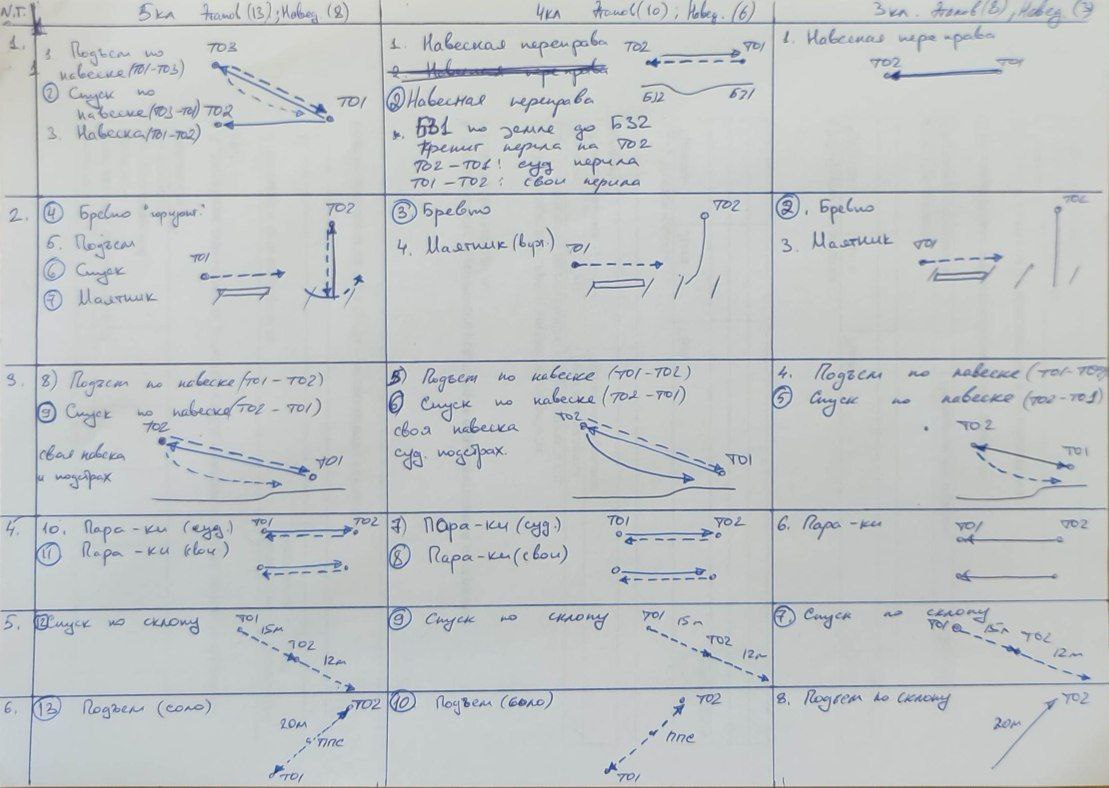 N.T. 5кл Этапов (13); Навед. (8) 4кл Этапов (10); Навед. (6) 3кл. Этапов (8), Навед. (3)
1.
1. Подъем по
навеске (ТО1-ТО3)
2 Спуск по
навеске (ТО3-ТО1)
3. Навеска (ТО1-ТО2)
ТО3
ТО1
ТО2
1. Навесная переправа
2. Навесная переправа
2 Навесная переправа
* БЗ1 по земле до БЗ2
Крепит перила на ТО2
ТО2-ТО1: суд перила
ТО1-ТО2: свои перила
ТО2 ТО1
БЗ2 БЗ1
1. Навесная переправа
ТО2 ТО1
2.
4 Бревно "горизонт."
5. Подъем
6 Спуск
7 Маятник
ТО1
ТО2
3 Бревно
4. Маятник
ТО1
ТО2
2. Бревно
3. Маятник
ТО1
ТО2
3.
8) Подъем по навеске (ТО1-ТО2)
9 Спуск по навеске (ТО2-ТО1)
своя навеска
и подстрах
ТО2
ТО1
5) Подъем по навеске (ТО1-ТО2)
6 Спуск по навеске (ТО2-ТО1)
своя навеска
суд. подстрах.
ТО2
ТО1
4. Подъем по навеске (ТО1-ТО2)
5 Спуск по навеске (ТО2-ТО1)
ТО2
ТО1
4.
10. Пара-ки (суд.)
11 Пара-ки (свои)
ТО1 ТО2
7) Пара-ки (суд.)
8 Пара-ки (свои)
ТО1 ТО2
6. Пара-ки
ТО1 ТО2
5.
12 Спуск по склону
ТО1 15м
ТО2
12м
9 Спуск по склону
ТО1 15м
ТО2
12м
7. Спуск по склону
ТО1 15м ТО2
12м
6.
13 Подъем (соло)
20м
ТО2
ППС
ТО1
10 Подъем (соло)
ТО2
ППС
ТО1
8. Подъем по склону
ТО2
20м